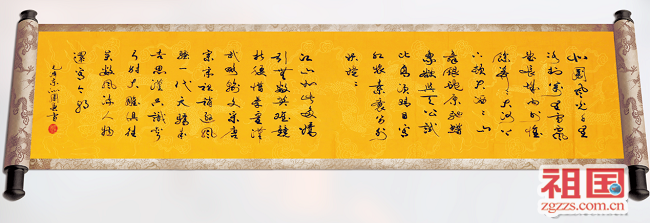 北國風光千里
冰封萬里雪飄
望長城內外惟
餘莽莽大河上
下頓失滔滔山
舞銀蛇原馳蠟
象欲與天公試
比高須晴日看
紅裝素裹分外
妖嬈
江山如此多嬌
引無數英雄競
折腰惜秦皇漢
武略輸文采唐
宗宋祖稍遜風
騷一代天驕成
吉思汗只識彎
弓射大雕俱往
矣數風流人物
還看今朝
祖国
zgzzs.com.cn